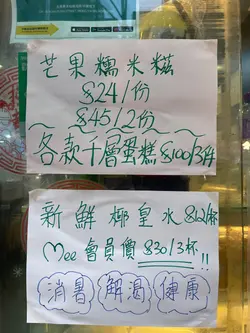 芒果糯米糍
$24/份
$45/2份
各款千層蛋糕$100/3件
新鮮椰皇水$12/杯
Mee會員價$30/3杯!!
消暑 解渴 健康